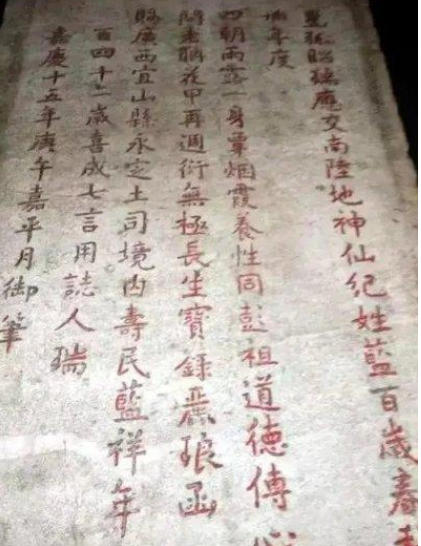 星弧昭瑞應交南陸地神仙紀姓藍百歲春
年度
四朝雨露一身覃烟霞養性同彭祖道德傳心
問老聃花甲再週衍無極長生寶錄麗琅函
賜廣西宜山縣永定土司境內壽民藍祥年
百四十二歲喜成七言用誌人瑞
嘉慶十五年庚午嘉平月御筆